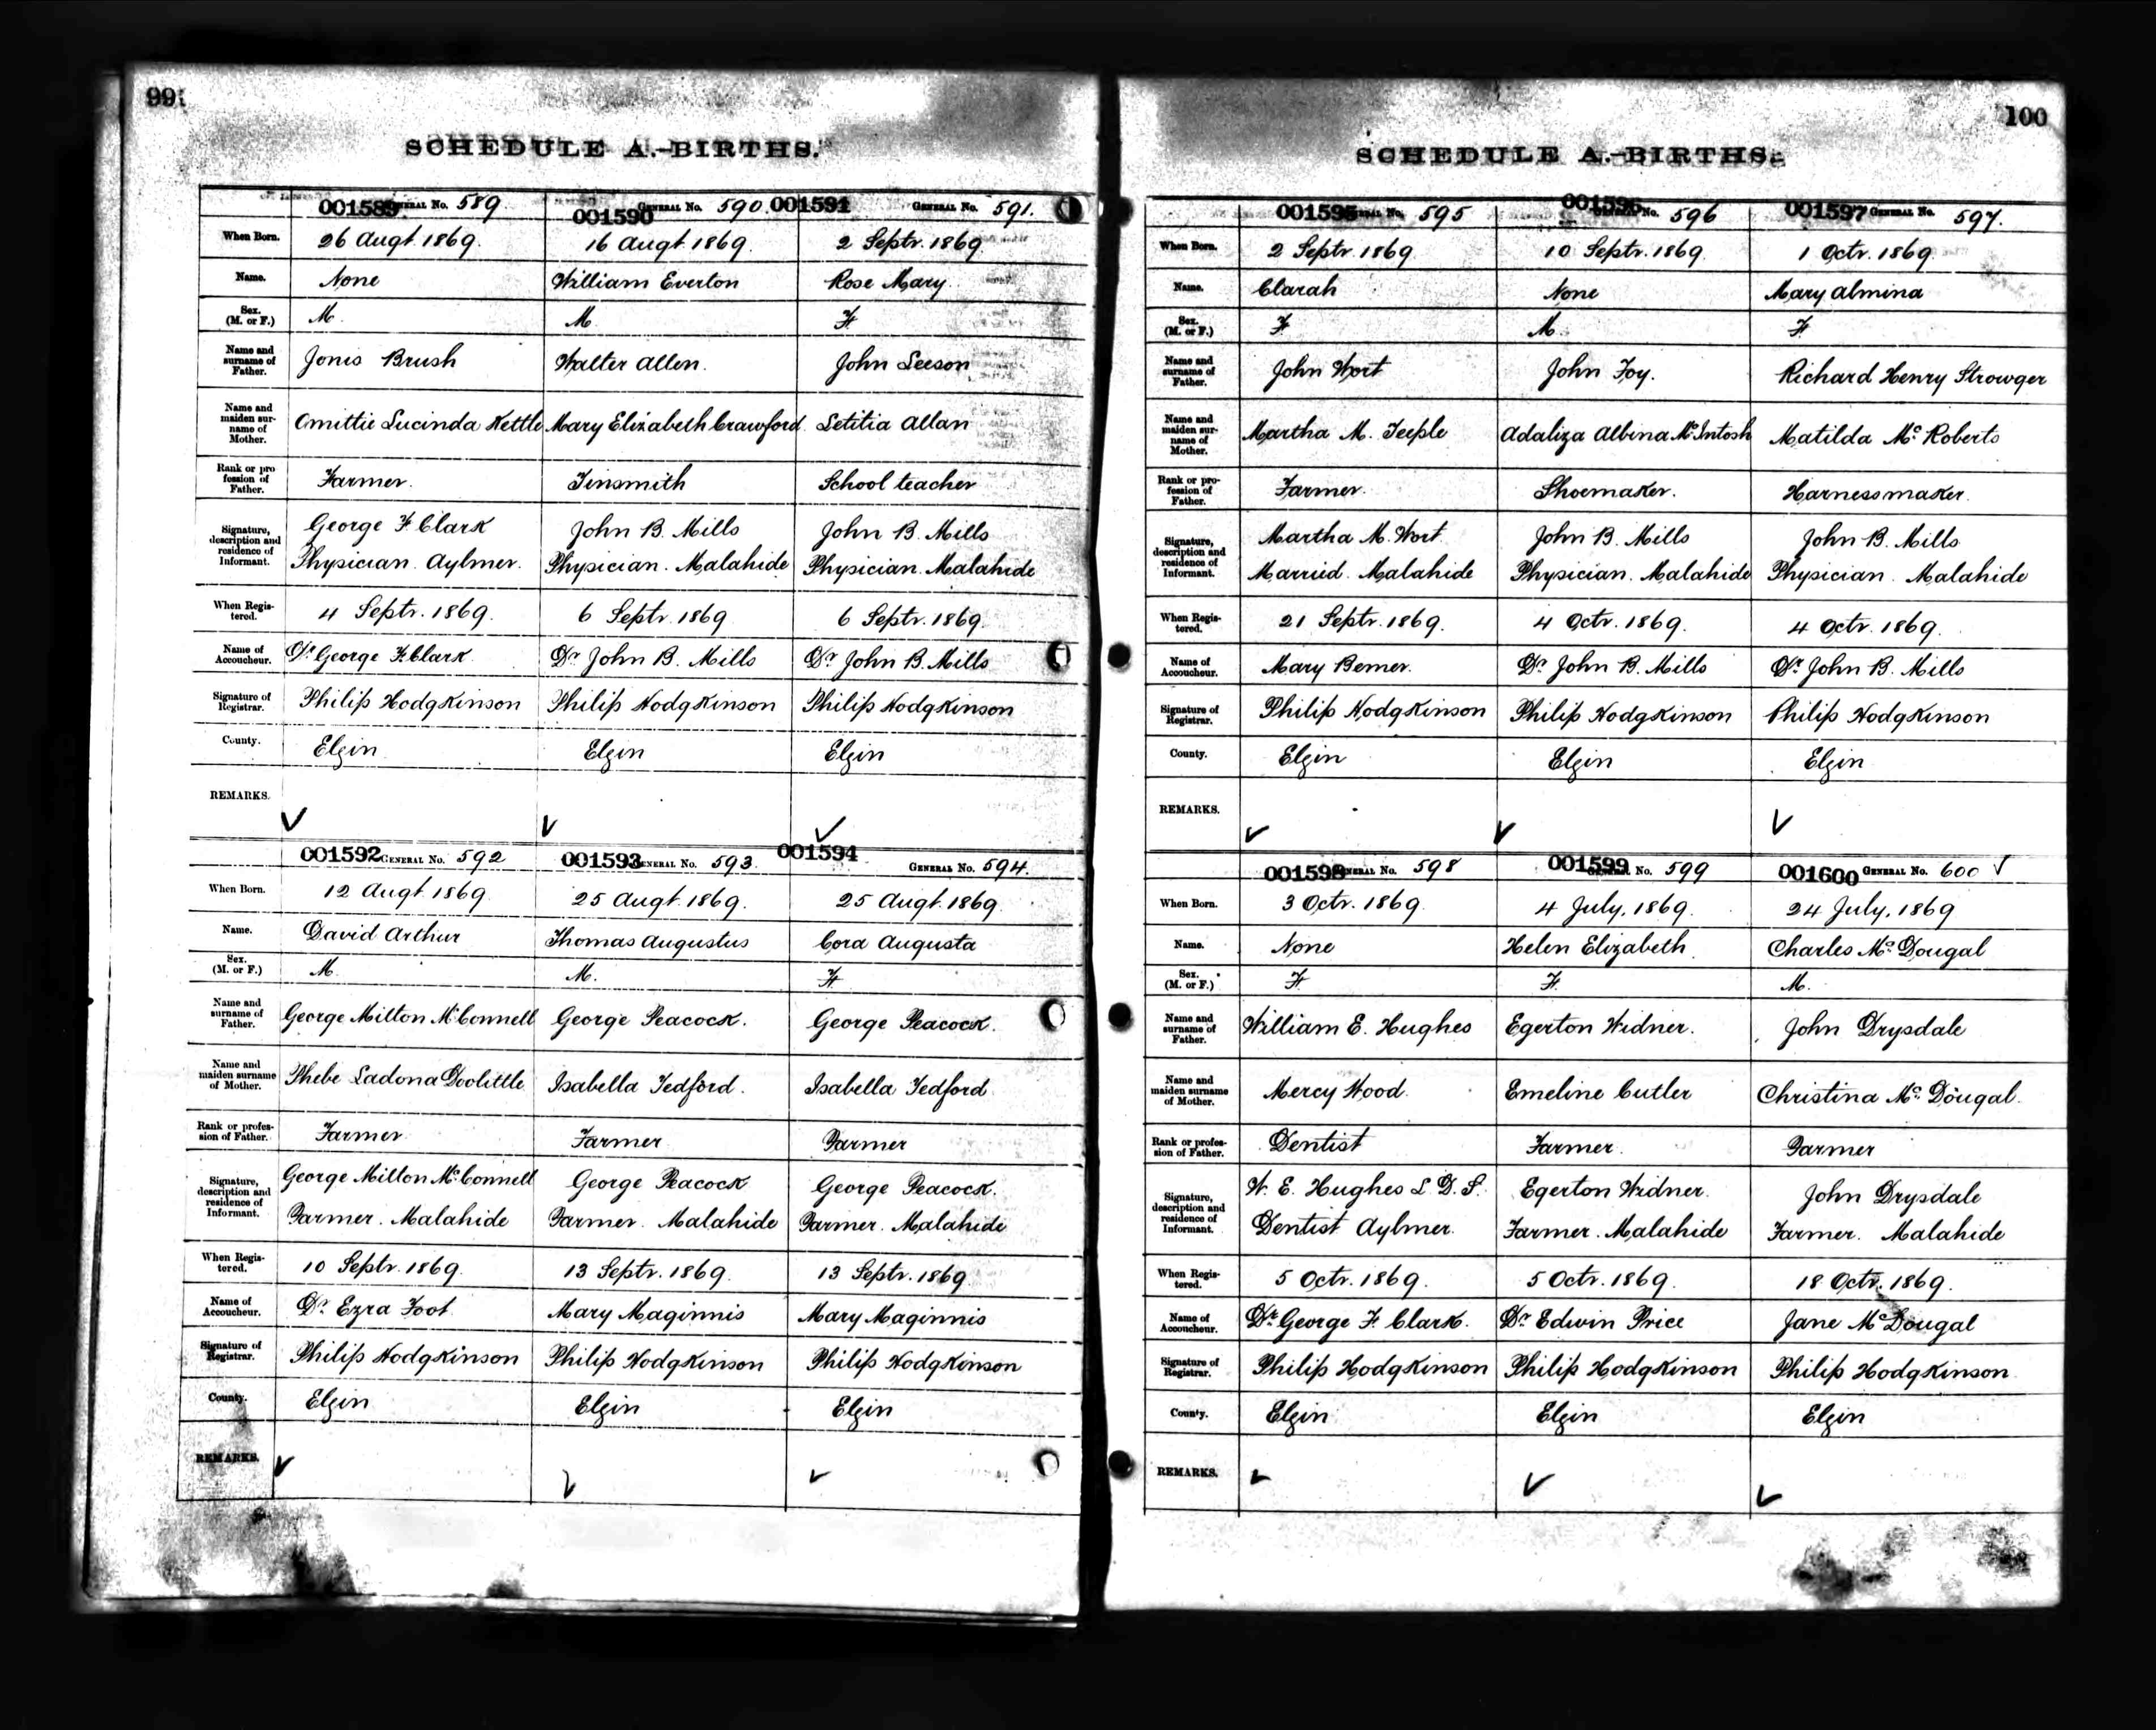 99
SCHEDULE A.-BIRTHS.
001589 GENERAL No. 589. 001590 GENERAL No. 590. 001591 GENERAL No. 591.
When Born. 26 Augt. 1869. 16 Augt. 1869. 2 Septr. 1869
Name. None William Everton Rose Mary
Sex. (M. or F.) M. M F.
Name and surname of Father. Jonis Brush Walter Allen. John Leeson
Name and maiden sur-name of Mother. Omittie Lucinda Kettle Mary Elizabeth Crawford. Letitia Allan
Rank or pro fession of Father. Farmer. Tinsmith School teacher
Signature, description and residence of Informant. George F. Clark John B. Mills John B. Mills
Physician. Aylmer. Physician. Malahide Physician. Malahide
When Regis-tered. 4 Septr. 1869. 6 Septr. 1869 6 Septr. 1869.
Name of Accoucheur. Dr. George F. Clark Dr John B. Mills Dr John B. Mills
Signature of Registrar. Philip Hodgkinson Philip Hodgkinson Philip Hodgkinson
County. Elgin Elgin Elgin
REMARKS.
001592 GENERAL No. 592 001593 GENERAL No. 593. 001594 GENERAL No. 594.
When Born. 12 Augt 1869 25 Augt. 1869. 25 Augt. 1869
Name. David Arthur Thomas Augustus Cora Augusta
Sex. (M. or F.) M. M. F.
Name and surname of Father. George Milton McConnell George Peacock. George Peacock.
Name and maiden surname of Mother. Phebe Ladona Doolittle Isabella Tedford. Isabella Tedford
Rank or profes-sion of Father. Farmer Farmer Farmer
Signature, description and residence of Informant. George Milton McConnell George Peacock George Peacock.
Farmer. Malahide Farmer. Malahide Farmer. Malahide
When Regis-tered. 10 Septr. 1869. 13 Septr. 1869. 13 Septr. 1869
Name of Accoucheur. Dr. Ezra Foot Mary Maginnis Mary Maginnis
Signature of Registrar. Philip Hodgkinson Philip Hodgkinson Philip Hodgkinson
County. Elgin Elgin Elgin
REMARKS.
100
SCHEDULE A.-BIRTHS.
001595 GENERAL No. 595 001596 GENERAL No. 596 001597 GENERAL No. 597.
When Born. 2 Septr 1869 10 Septr. 1869. 1 Octr. 1869
Name. Clarah None Mary Almina
Sex. (M. or F.) F. M. F.
Name and surname of Father. John Wort John Foy. Richard Henry Strowger
Name and maiden sur-name of Mother. Martha M. Teeple Adaliza Albina McIntosh Matilda Mc Roberts
Rank or pro-fession of Father. Farmer. Shoemaker. Harnessmaker.
Signature, description and residence of Informant. Martha M. Wort John B. Mills John B. Mills
Married. Malahide Physician. Malahide Physician. Malahide
When Regis-tered. 21 Septr. 1869. 4 Octr. 1869. 4 Octr. 1869.
Name of Accoucheur. Mary Bemer. Dr. John B. Mills Dr. John B. Mills
Signature of Registrar. Philip Hodgkinson Philip Hodgkinson Philip Hodgkinson
County. Elgin Elgin Elgin
REMARKS.
001598 GENERAL No. 598 001599 GENERAL No. 599 001600 GENERAL No. 600
When Born. 3 Octr. 1869. 4 July, 1869. 24 July, 1869
Name. None Helen Elizabeth Charles Mc Dougal
Sex. (M. or F.) F. F. M.
Name and surname of Father. William E. Hughes Egerton Widner. John Drysdale
Name and maiden surname of Mother. Mercy Wood. Emeline Cutler Christina Mc Dougal.
Rank or profes-sion of Father. Dentist Farmer. Farmer
Signature, description and residence of Informant. W. E. Hughes L. D. S. Egerton Widner. John Drysdale
Dentist Aylmer. Farmer. Malahide Farmer. Malahide
When Regis-tered. 5 Octr. 1869. 5 Octr. 1869. 18 Octr. 1869.
Name of Accoucheur. Dr. George F. Clark. Dr Edwin Price Jane McDougal
Signature of Registrar. Philip Hodgkinson Philip Hodgkinson Philip Hodgkinson
County. Elgin Elgin Elgin
REMARKS.